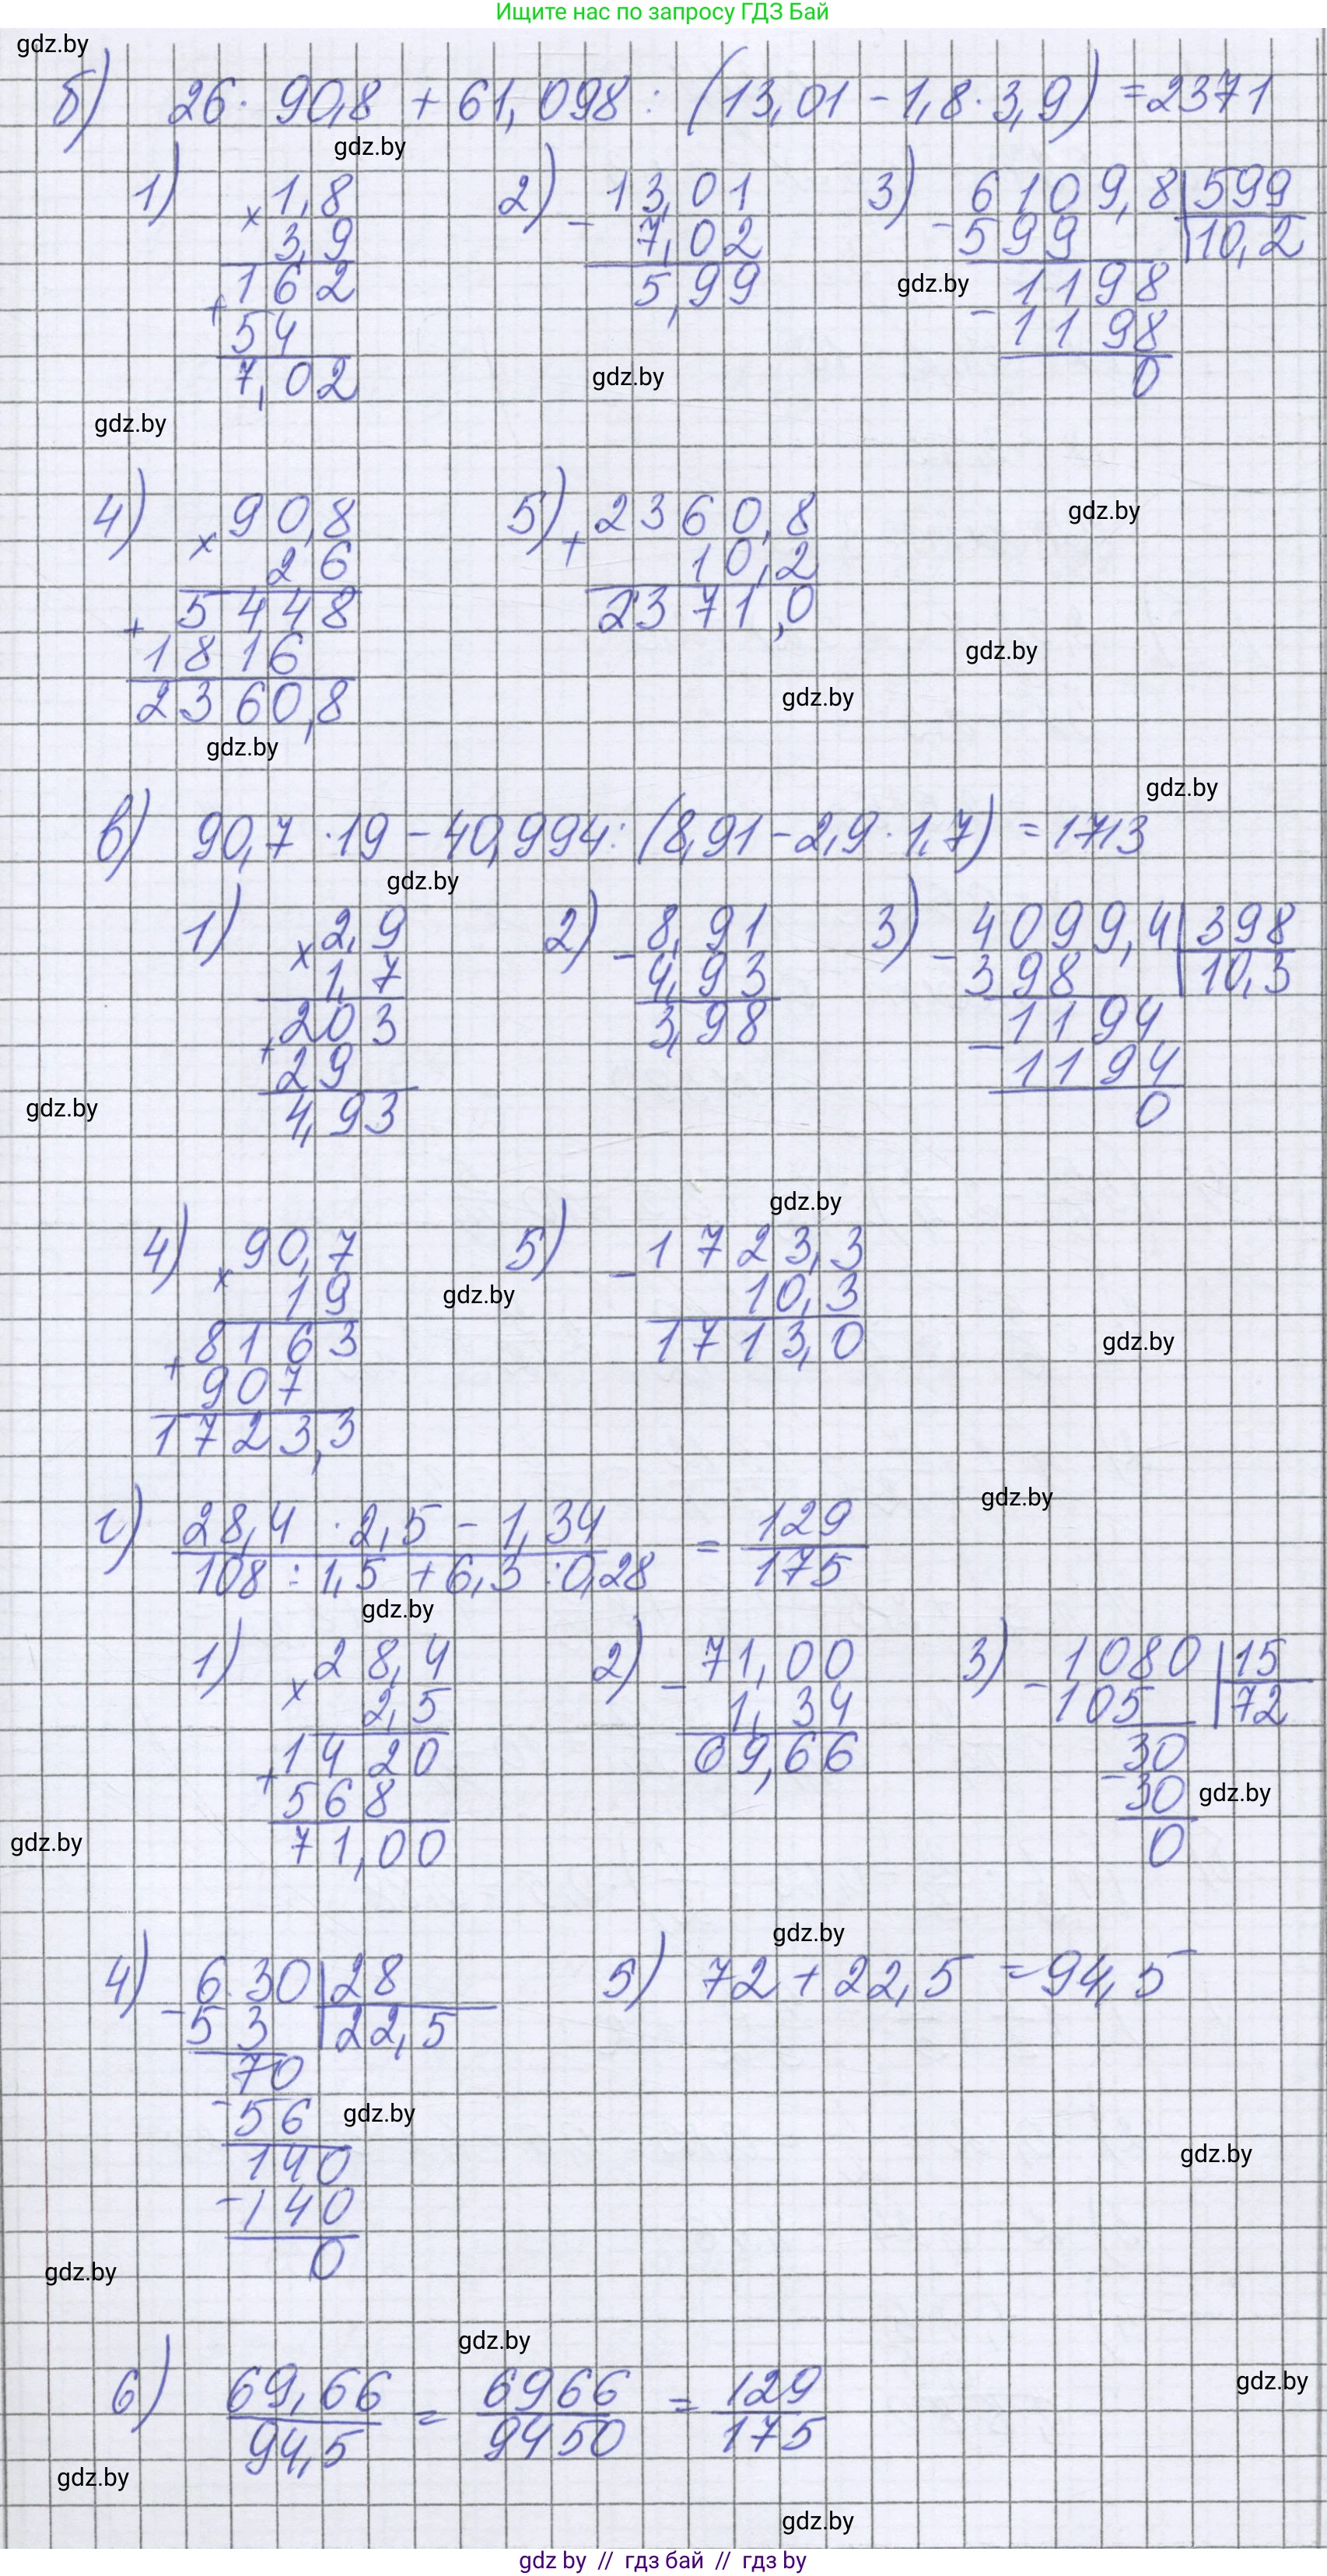 Ищите нас по запросу ГДЗ Бай
gdz.by
б) 26 · 90,8 + 61,098 : (13,01 - 1,8 · 3,9) = 2371
gdz.by
1) × 1,8
3,9
+ 162
54
7,02
2) - 13,01
7,02
5,99
3) - 6109,8 | 599
599 | 10,2
gdz.by
- 1198
1198
0
gdz.by
gdz.by
4) × 90,8
26
+ 5448
1816
2360,8
5) + 2360,8
10,2
2371,0
gdz.by
gdz.by
gdz.by
gdz.by
gdz.by
в) 90,7 · 19 - 40,994 : (8,91 - 2,9 · 1,7) = 1713
gdz.by
1) × 2,9
1,7
+ 203
29
4,93
2) - 8,91
4,93
3,98
3) - 4099,4 | 398
398 | 10,3
- 1194
1194
0
gdz.by
gdz.by
4) × 90,7
19
+ 8163
907
1723,3
5) - 1723,3
10,3
1713,0
gdz.by
gdz.by
gdz.by
г) 28,4 · 2,5 - 1,34 = 129
108 : 1,5 + 6,3 : 0,28 175
gdz.by
1) × 28,4
2,5
+ 1420
568
71,00
2) - 71,00
1,34
69,66
3) - 1080 | 15
105 | 72
30
- 30
0
gdz.by
gdz.by
gdz.by
4) - 630 | 28
53 | 22,5
70
- 56
140
- 140
0
5) 72 + 22,5 = 94,5
gdz.by
gdz.by
gdz.by
gdz.by
6) 69,66 = 6966 = 129
94,5 9450 175
gdz.by
gdz.by
gdz.by
gdz by // гдз бай // гдз by